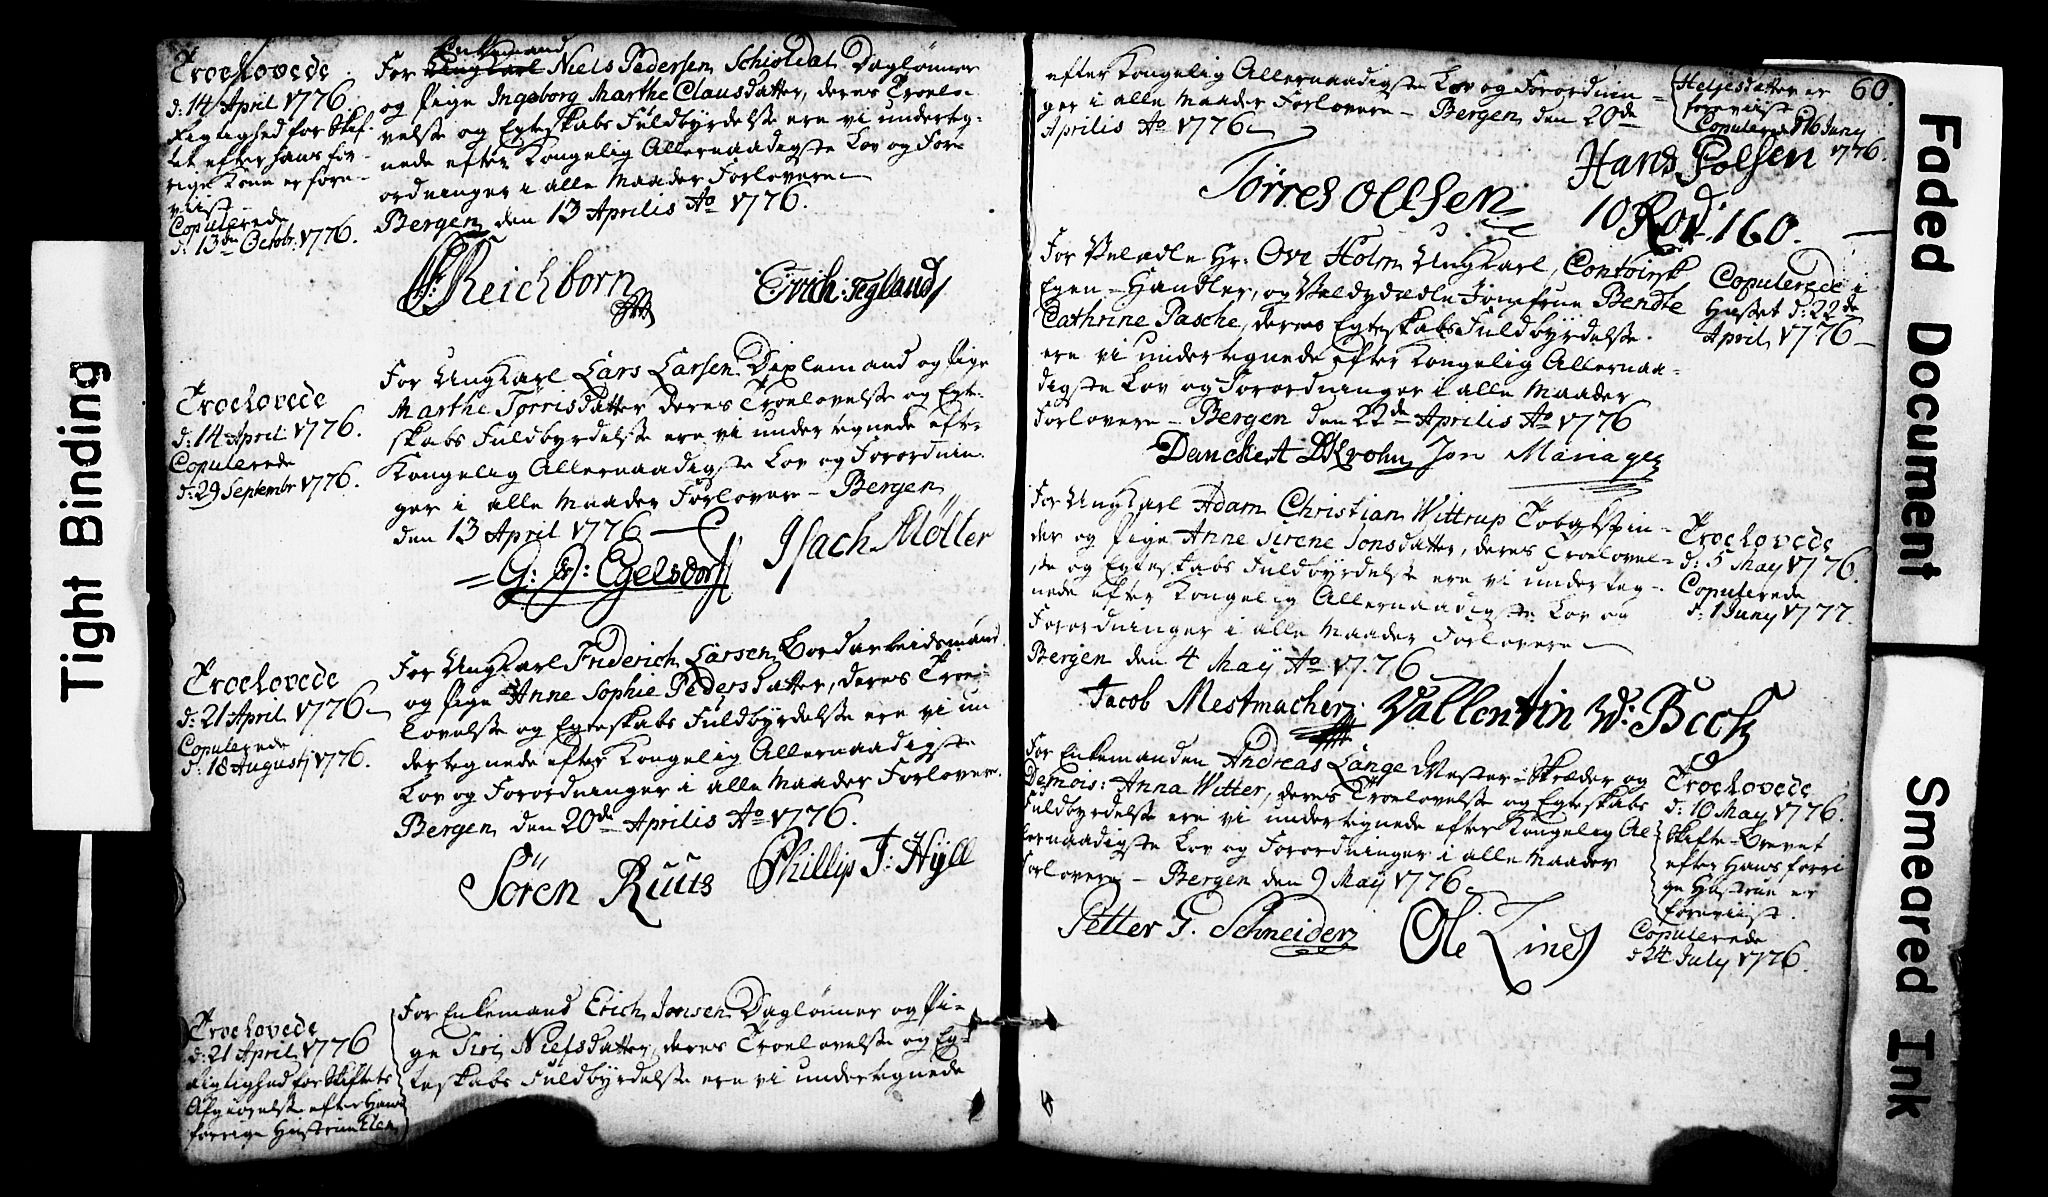 Tight Binding
Faded Document
Smeared Ink
Troelovede
d: 14 April 1776.
Rigtighed for Skif-
tet efter hans for-
rige Kone er fore-
viist
Copulerede
d: 13de Octobr: 1776.
Enkemand
For Ungkarl Niels Pedersen Schioldal Daglønner
og Pige Ingeborg Marthe Clausdatter, deres Troelo-
velse og Egteskabs Fuldbyrdelse ere vi underteg-
nede efter Kongelig Allernaadigste Lov og For-
ordninger i alle Maader Forlovere
Bergen den 13 Aprilis Ao 1776.
Reichborn Erich: Tegland
Troelovede
d: 14 April 1776.
Copulerede
d: 29 Septembr 1776.
For Ungkarl Lars Larsen Dixlemand og Pige
Marthe Tørrisdatter deres Troelovelse og Egte-
skabs Fuldbyrdelse ere vi undertegnede efter
Kongelig Allernaadigste Lov og Forordnin-
ger i alle Maader Forlovere - Bergen
den 13 April 1776
G: Egelsdorff Isach Møller
Troelovede
d: 21 April 1776
Copulerede
d: 18 Augustj 1776.
For Ungkarl Friderich Larsen Bordarbeidsmand
og Pige Anne Sophie Pedersdatter, deres Troe-
lovelse og Egteskabs Fuldbyrdelse ere vi un
dertegnede efter Kongelig Allernaadigste
Lov og Forordninger i alle Maader Forlovere.
Bergen den 20de Aprilis Ao 1776.
Sören Ruus Phillip J: Hÿll
Troelovede
d: 21 April 1776
Rigtighed for Skiftets
Afgiørelse efter Hans
forrige Hustrue Elen
For Enkemand Erich Jonsen Daglønner og Pi-
ge Siri Nielsdatter, deres Troelovelse og Eg-
teskabs Fuldbyrdelse ere vi undertegnede
60.
efter Kongelig Allernaadigste Lov og Forordnin-
ger i alle Maader Forlovere - Bergen den 20de
Aprilis Ao 1776
Heljesdatter er
foreviist
Copulered d 16 Juny
1776.
Törres Ollsen Hans Polsen
10 Rod: 160.
For Velædle Hr: Ove Holm Ungkarl, Contoirsk
Egen-Handler, og Velædle Jomfrue Bendte
Cathrine Pasche, deres Egteskabs Fuldbyrdelse
ere vi undertegnede efter Kongelig Allernaa-
digste Lov og Forordninger i alle Maader
Forlovere - Bergen den 22de Aprilis Ao 1776
Copulerede i
Huset d: 22de
April 1776
Danckert DKrohn Jon Mariager
For Ungkarl Adam Christian Wittrup Tobakspin-
der og Pige Anne Sirene Jonsdatter, deres Troelovel-
se og Egteskabs Fuldbyrdelse ere vi underteg-
nede efter Kongelig Allernaadigste Lov og
Forordninger i alle Maader Forlovere
Bergen den 4 Maÿ Ao 1776
Troelovede
d: 5 May 1776.
Copulerede
d: 1 Juny 1777.
Jacob Mestmacher Vallentin W: Beck
For Enkemanden Andreas Lange Mester-Skræder og
Demois: Anna Witter, deres Troelovelse og Egteskabs
Fuldbyrdelse ere vi undertegnede efter Kongelig Al-
lernaadigste Lov og Forordninger i alle Maader
Forlovere - Bergen den 9 Maÿ 1776
Troelovede
d: 10 May 1776.
Skifte-Brevet
efter Hans forri
ge Hustrue er
foreviist.
Copulerede
d 24 July 1776.
Petter G. Schneider Ole Lind